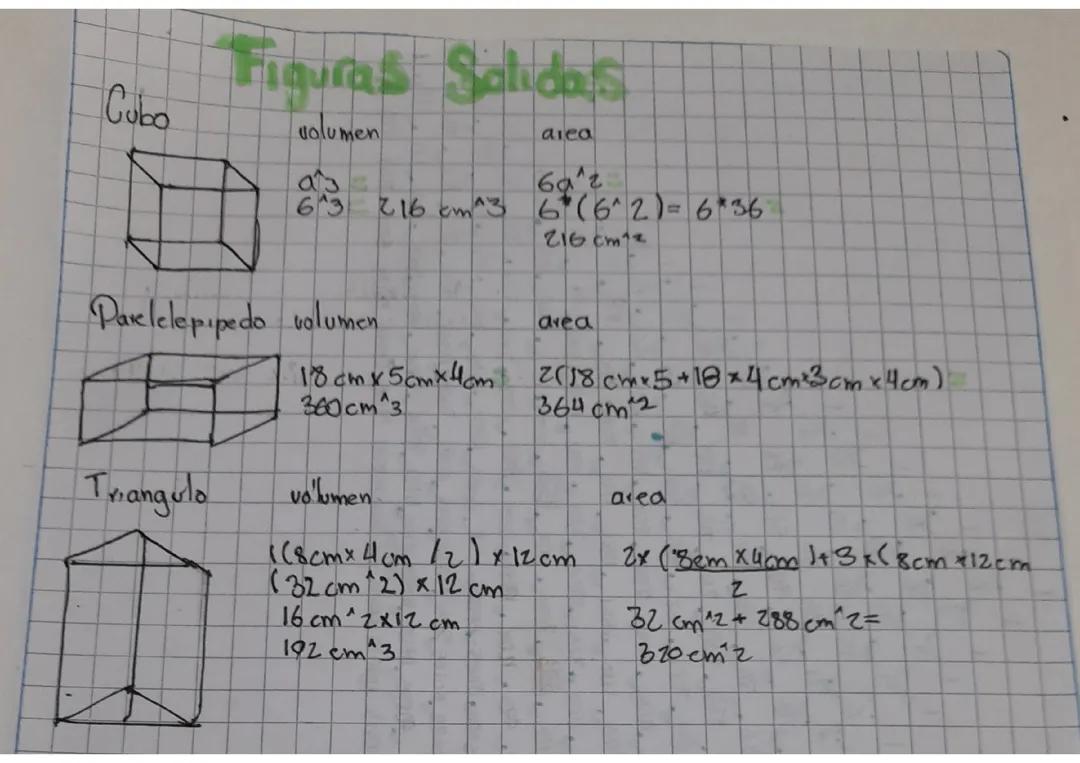 Figuras Solidas
Cubo
volumen
area
a^3 =
6a^2 =
6^3 = 216 cm^3
6*(6^2) = 6*36 =
216 cm^2
Parelelepipedo
volumen
area
18 cm x 5cm x 4cm =
2(18 cm x 5 + 18 x 4 cm x 3cm x 4cm) =
360 cm^3
364 cm^2
Triangulo
volumen
area
((8cm x 4cm /2) x 12 cm
2x (8cm x 4cm) + 3 x (8cm x 12cm
2
(32 cm^2) x 12 cm
16 cm^2 x 12 cm
32 cm^2 + 288 cm^2 =
192 cm^3
320 cm^2